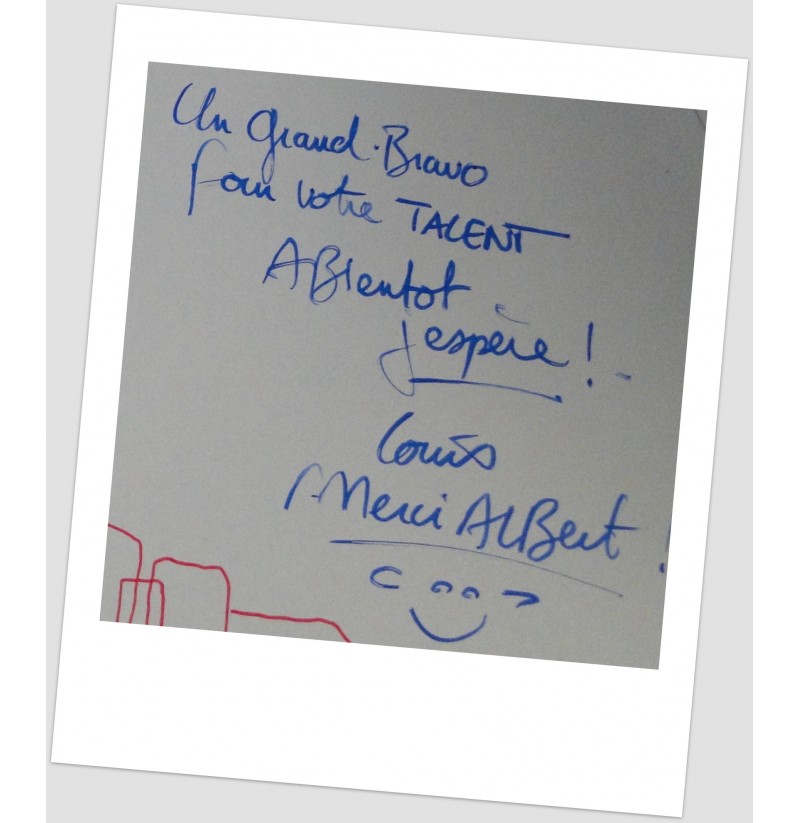 Un Grand Bravo
Pour votre TALENT
A Bientot
j'espère !
Louis
Merci Albert !